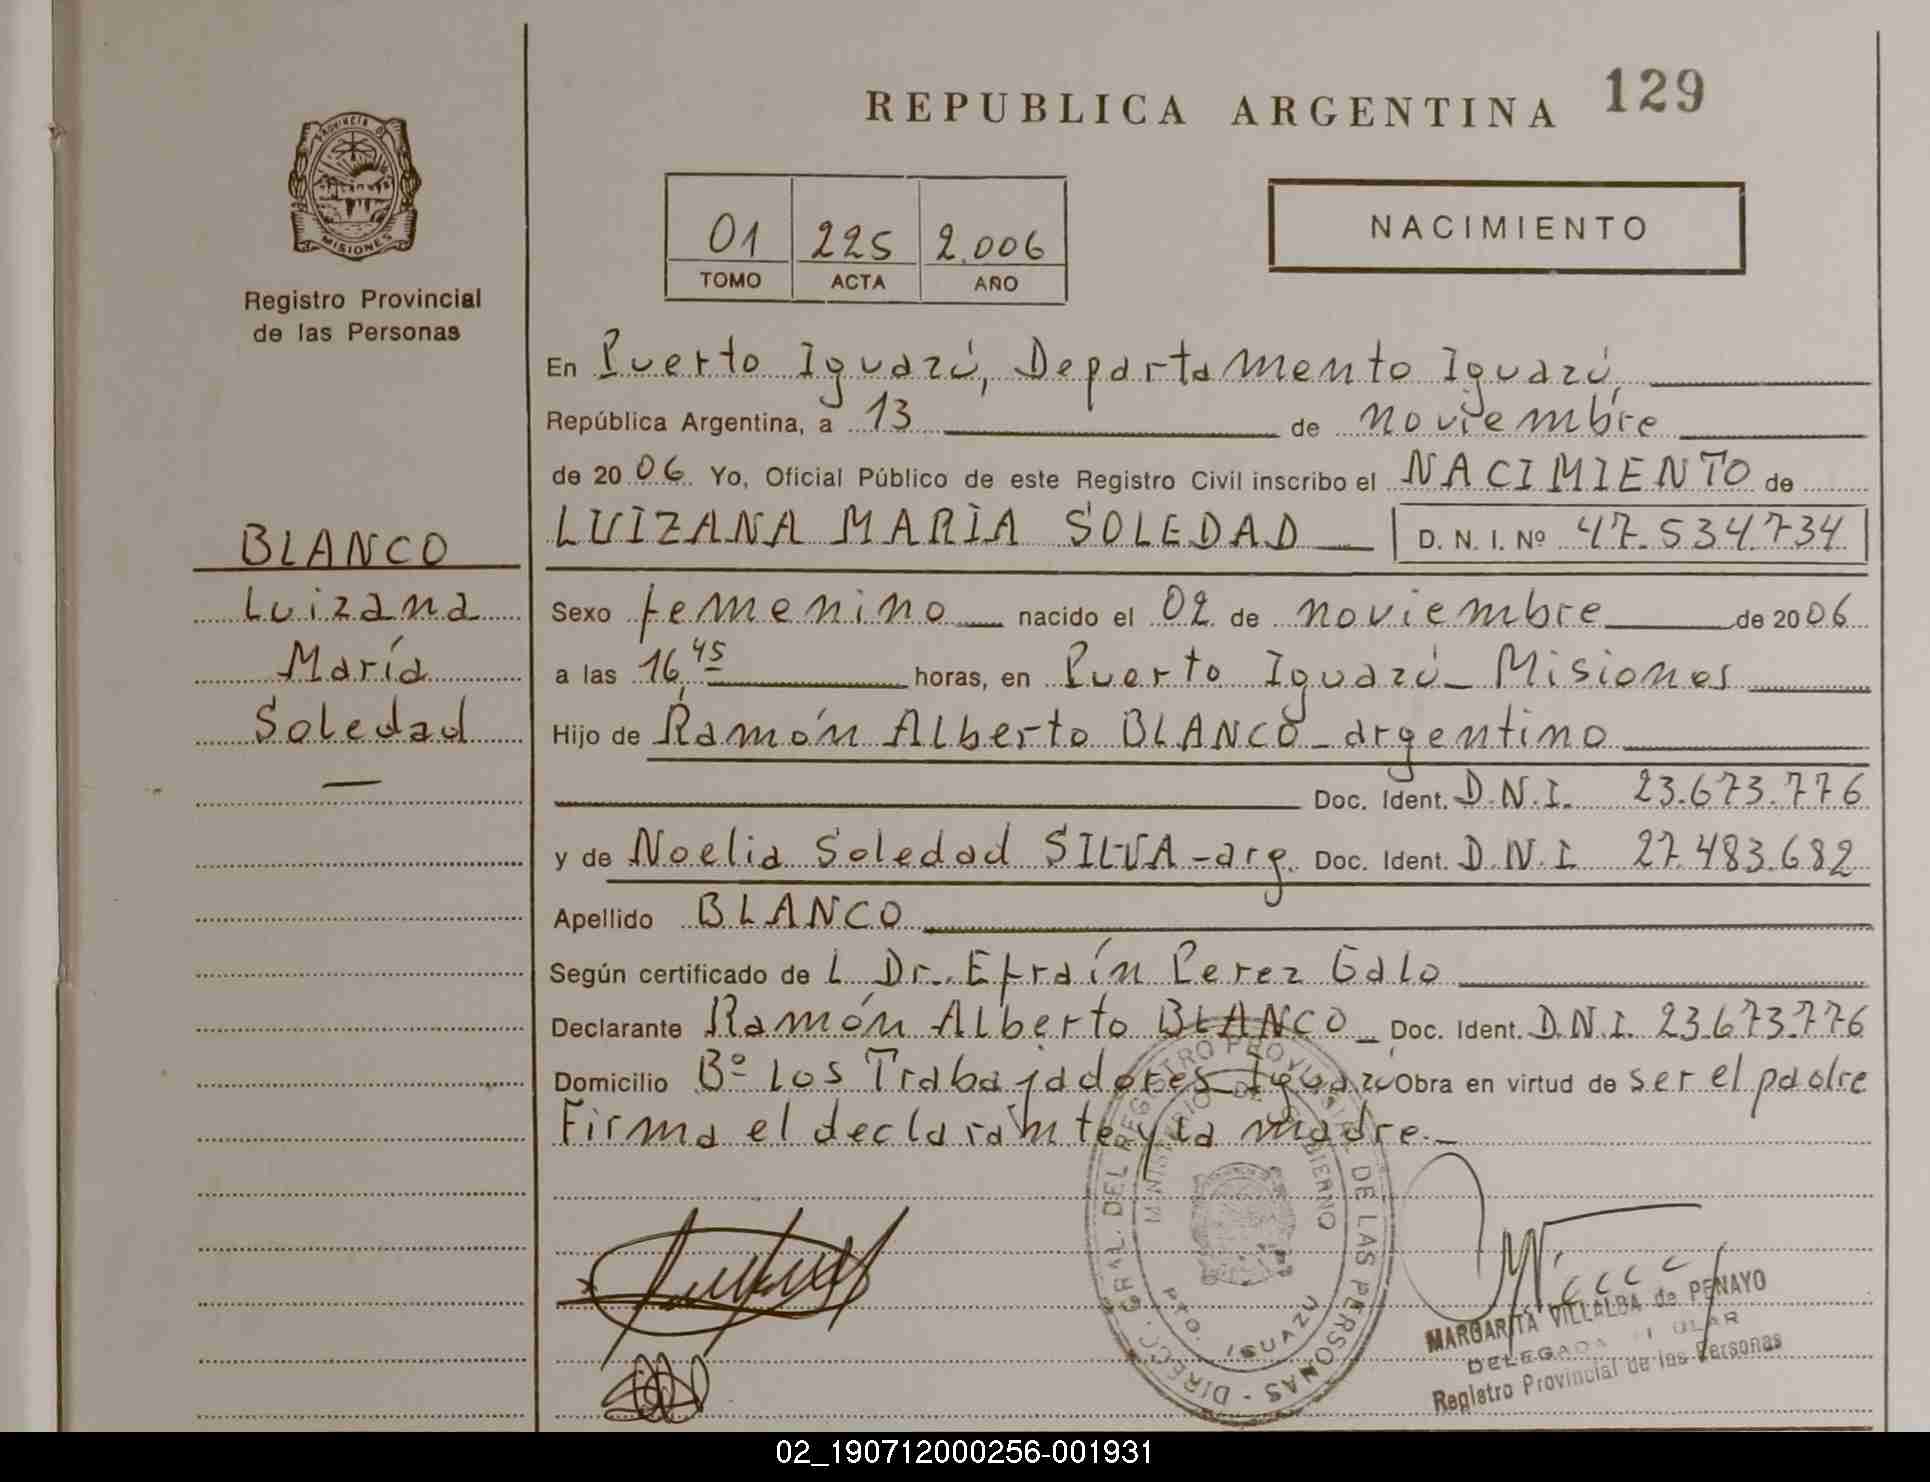 REPUBLICA ARGENTINA 129
PROVINCIA DE
MISIONES
Registro Provincial
de las Personas
01 225 2.006
TOMO ACTA AÑO
NACIMIENTO
BLANCO
Luizana
María
Soledad
En Puerto Iguazú, Departamento Iguazú,
República Argentina, a 13 de noviembre
de 2006 Yo, Oficial Público de este Registro Civil inscribo el NACIMIENTO de
LUIZANA MARÍA SOLEDAD D. N. I. Nº 47.534.734
Sexo femenino nacido el 02 de noviembre de 2006
a las 16,45 horas, en Puerto Iguazú - Misiones
Hijo de Ramón Alberto BLANCO - argentino
Doc. Ident. D.N.I. 23.673.776
y de Noelia Soledad SILVA - arg. Doc. Ident. D.N.I 27.483.682
Apellido BLANCO
Según certificado de L Dr. Efraín Perez Galo
Declarante Ramón Alberto BLANCO Doc. Ident. D.N.I. 23.673.776
Domicilio Bº Los Trabajadores - Iguazú Obra en virtud de ser el padre
Firma el declarante y la madre.-
DIRECC. GRAL. DEL REGISTRO PROVINCIAL DE LAS PERSONAS -
MINISTERIO DE GOBIERNO
PTO. IGUAZU
MARGARITA VILLALBA de PENAYO
DELEGADA TITULAR
Registro Provincial de las Personas
02_190712000256-001931